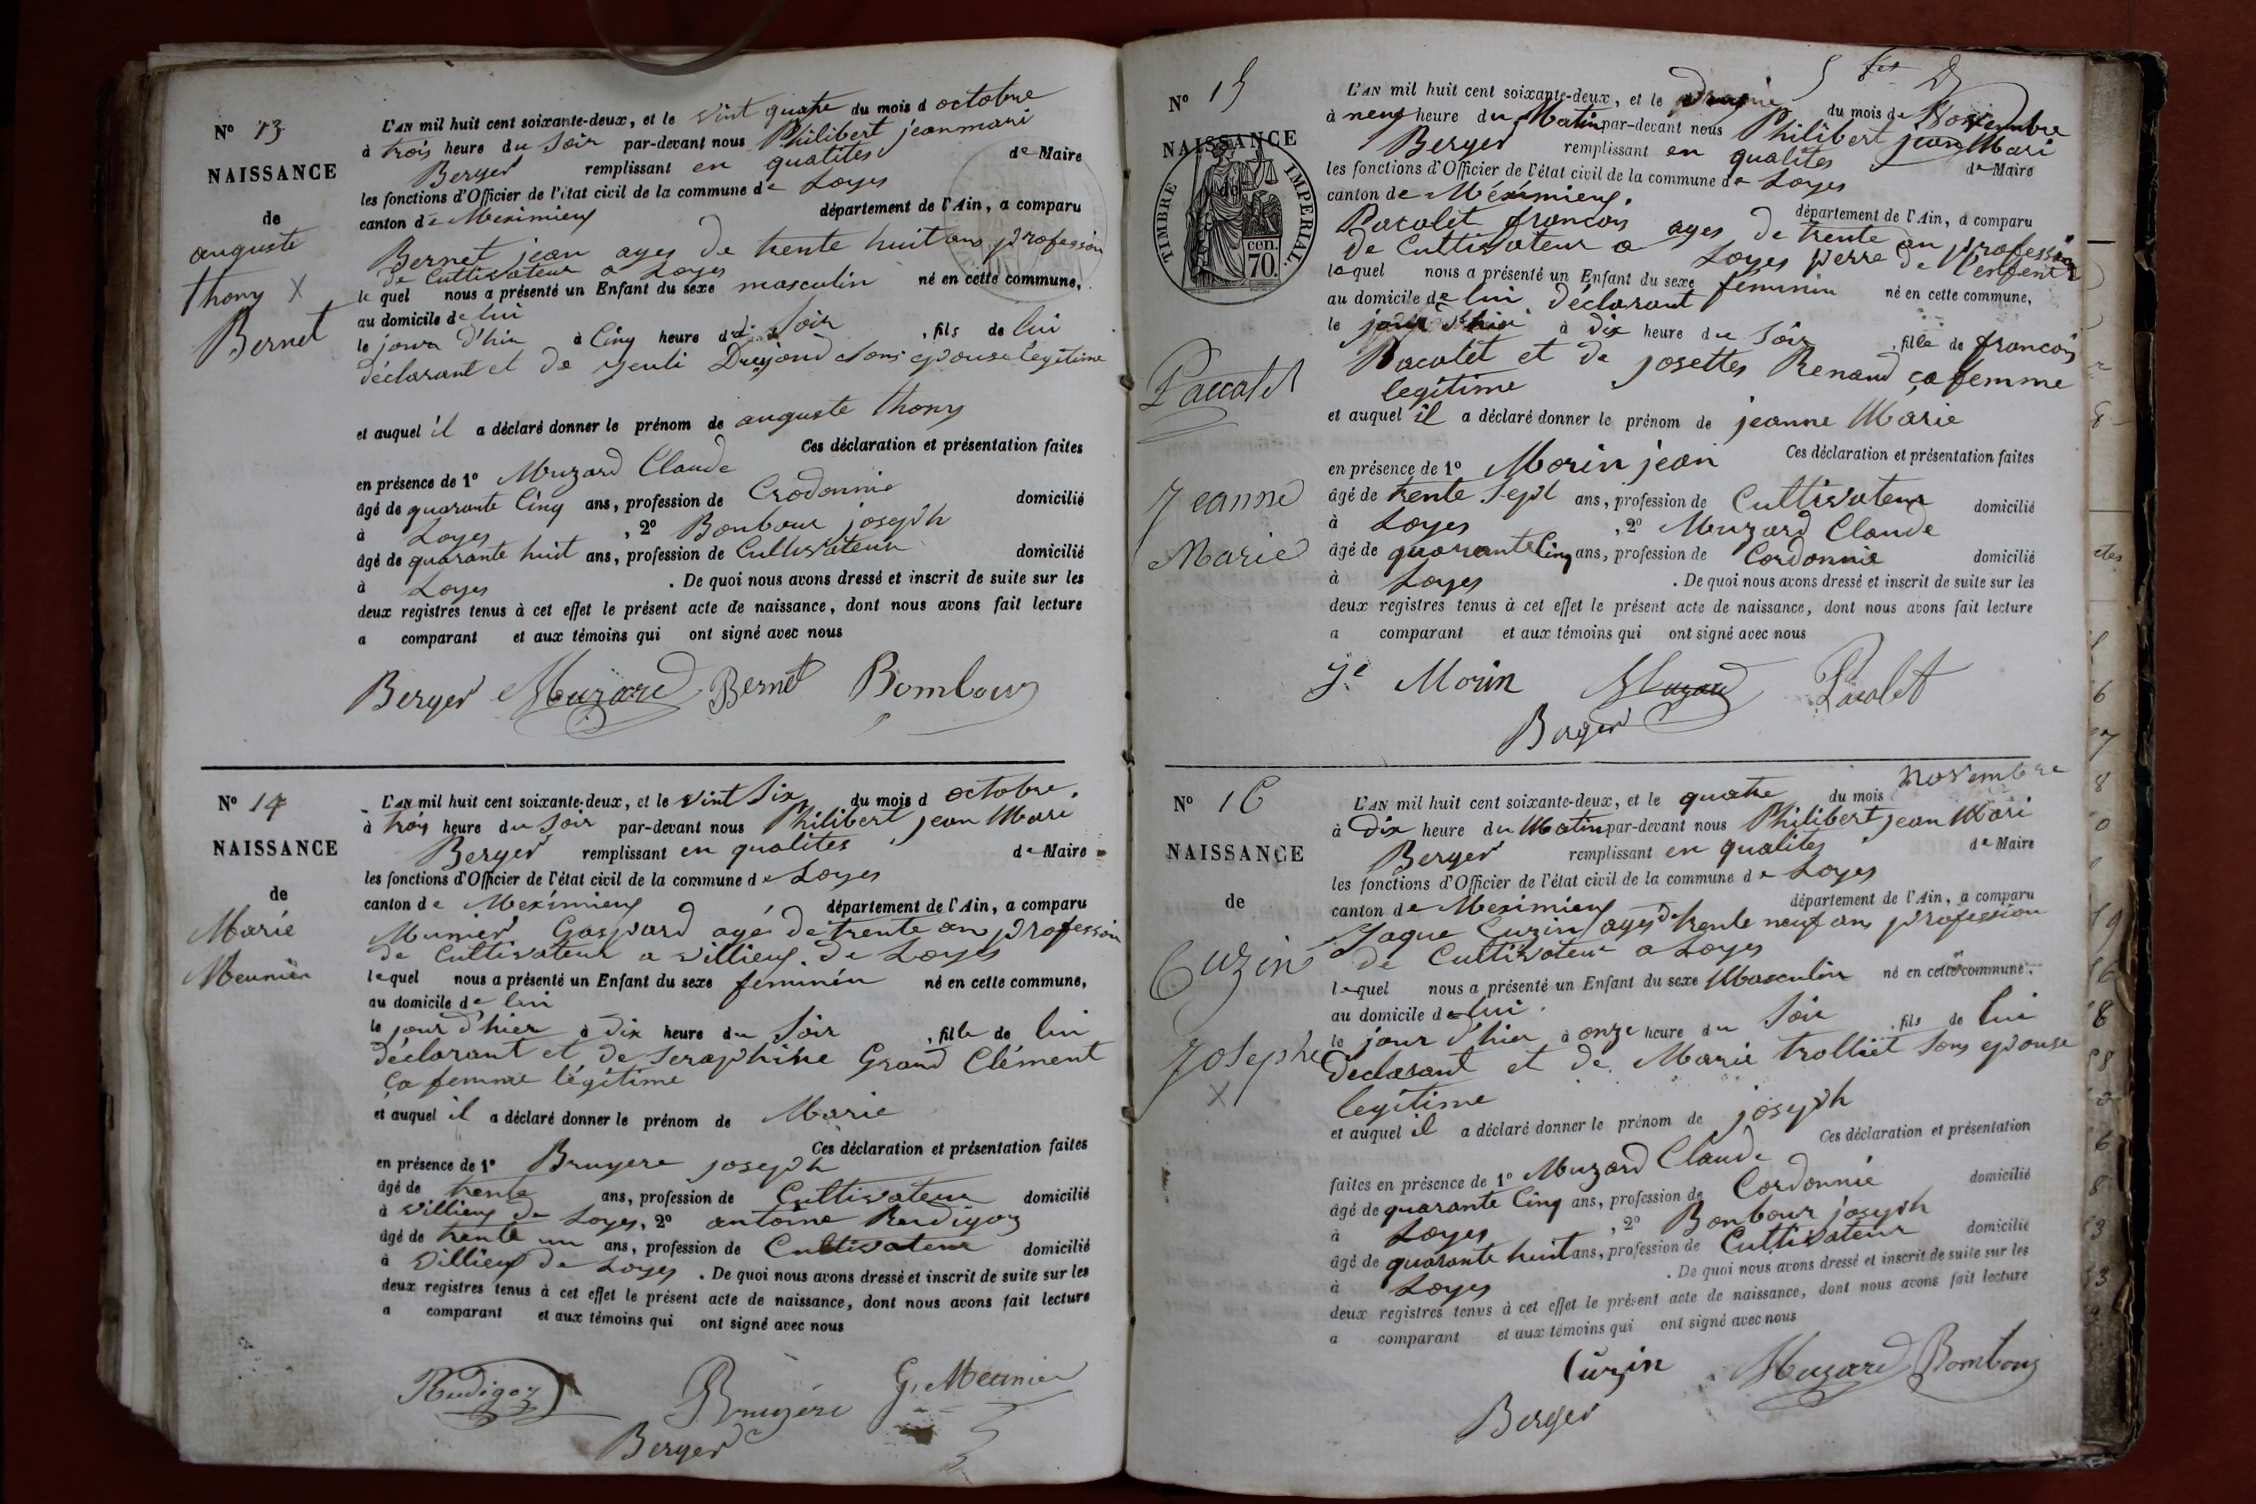 N° 13
NAISSANCE
de
auguste
thony X
Bernet
L'AN mil huit cent soixante-deux, et le vint quatre du mois d octobre
à trois heure du Soir par-devant nous Philibert jeanmari
Berger remplissant en qualites de Maire
les fonctions d'Officier de l'état civil de la commune de Loyes
canton de Meximieux département de l'Ain, a comparu
Bernet jean ages de trente huit ans profession
de Cultivateur a Loyes
le quel nous a présenté un Enfant du sexe masculin né en cette commune,
au domicile de lui
le jour d'hir à Cinq heure du Soir , fils de lui
déclarant et de Dujond Sons epouse legitime
et auquel il a déclaré donner le prénom de auguste thony
Ces déclaration et présentation faites
en présence de 1° Muzard Claude
âgé de quarante Cinq ans, profession de Crodonnie domicilié
à Loyes , 2° Bonbour joseph
âgé de quarante huit ans, profession de Cultivateur domicilié
à Loyes . De quoi nous avons dressé et inscrit de suite sur les
deux registres tenus à cet effet le présent acte de naissance, dont nous avons fait lecture
a comparant et aux témoins qui ont signé avec nous
Berger Muzard Bernet Bombour
N° 14
NAISSANCE
de
Marie
Meunier
L'AN mil huit cent soixante-deux, et le vint Six du mois d octobre.
à trois heure du Soir par-devant nous Philibert jean Mari
Berger remplissant en qualites de Maire
les fonctions d'Officier de l'état civil de la commune de Loyes
canton de Meximieux département de l'Ain, a comparu
Munier Gaspard agé de trente an profession
de Cultivateur a villieux de Loyes
lequel nous a présenté un Enfant du sexe feminin né en cette commune,
au domicile de lui
le jour d'hier à dix heure du Soir , fille de lui
déclarant et de Seraphine Grand Clément
ça femme légitime
et auquel il a déclaré donner le prénom de Marie
Ces déclaration et présentation faites
en présence de 1° Bruyere joseph
âgé de trente ans, profession de Cultivateur domicilié
à villieux de Loyes, 2° antoine Rudigoz
âgé de trente un ans, profession de Cultivateur domicilié
à villieux de Loyes . De quoi nous avons dressé et inscrit de suite sur les
deux registres tenus à cet effet le présent acte de naissance, dont nous avons fait lecture
a comparant et aux témoins qui ont signé avec nous
Rudigoz Bruyère G. Meunier
Berger
N° 15
NAISSANCE
de
TIMBRE IMPERIAL.
cen.
70.
Paccalet
Jeanne
Marie
L'AN mil huit cent soixante-deux, et le du mois de Novembre
à neuf heure du Matin par-devant nous Philibert jean Mari
Berger remplissant en qualites de Maire
les fonctions d'Officier de l'état civil de la commune de Loyes
canton de Méximieux. département de l'Ain, a comparu
Pacalet francois ages de trente an profession
de Cultivateur a Loyes perre de l'enfent
lequel nous a présenté un Enfant du sexe feminin né en cette commune,
au domicile de lui déclarant
le jour d'hier à dix heure du Soir , fille de francois
Pacalet et de josettes Renand ça femme
legitime
et auquel il a déclaré donner le prénom de jeanne Marie
Ces déclaration et présentation faites
en présence de 1° Morin jean
âgé de trente Sept ans, profession de Cultivateur domicilié
à Loyes , 2° Muzard Claude
âgé de quarante Cinq ans, profession de Cordonnie domicilié
à Loyes . De quoi nous avons dressé et inscrit de suite sur les
deux registres tenus à cet effet le présent acte de naissance, dont nous avons fait lecture
a comparant et aux témoins qui ont signé avec nous
Morin Muzard Pacalet
Berger
N° 16
NAISSANCE
de
Cuzin
Josephe
X
L'AN mil huit cent soixante-deux, et le quatre du mois novembre
à Dix heure du Matin par-devant nous Philibert jean Mari
Berger remplissant en qualites de Maire
les fonctions d'Officier de l'état civil de la commune de Loyes
canton de Meximieux département de l'Ain, a comparu
Jaque Cuzin ages de trente neuf ans profession
de Cultivateur a Loyes
lequel nous a présenté un Enfant du sexe Masculin né en cette commune,
au domicile de lui
le jour d'hier à onze heure du Soir , fils de lui
déclarant et de Marie trolliet Sons epouse
legitime
et auquel il a déclaré donner le prénom de joseph
Ces déclaration et présentation
faites en présence de 1° Muzard Claude
âgé de quarante Cinq ans, profession de Cordonnie domicilié
à Loyes , 2° Bonbour joseph
âgé de quarante huit ans, profession de Cultivateur domicilié
à Loyes . De quoi nous avons dressé et inscrit de suite sur les
deux registres tenus à cet effet le présent acte de naissance, dont nous avons fait lecture
a comparant et aux témoins qui ont signé avec nous
Cuzin Muzard Bombour
Berger